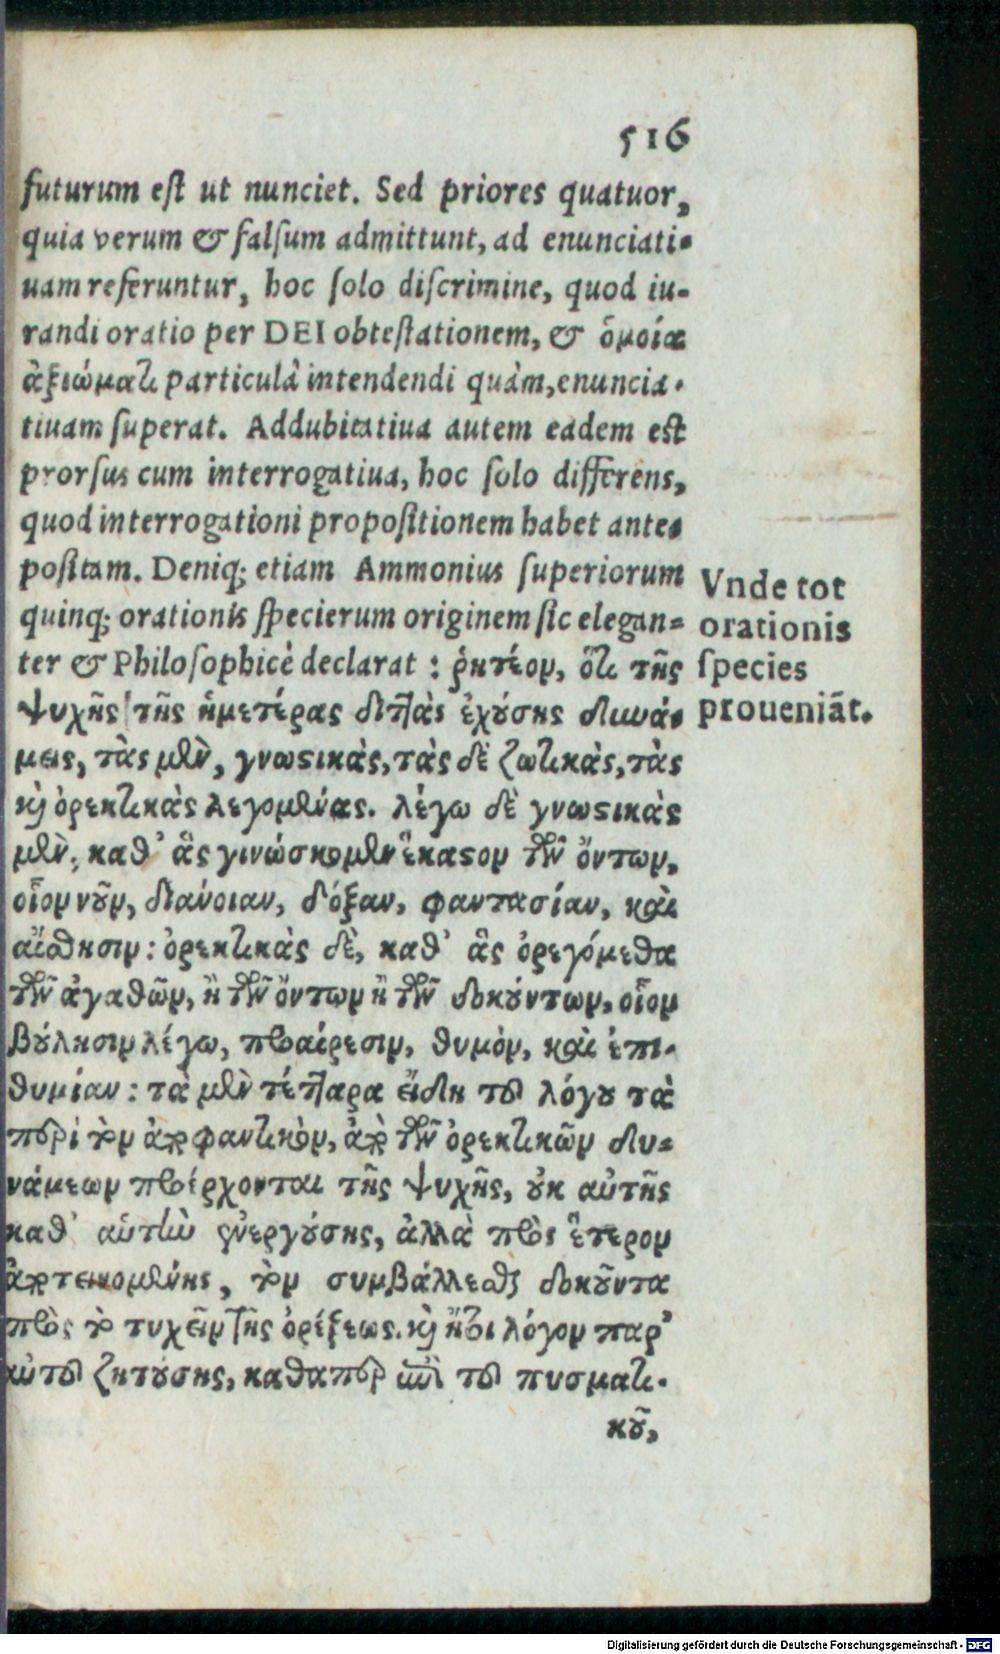 516
futurum est ut nunciet. Sed priores quatuor,
quia verum & falsum admittunt, ad enunciati-
uam referuntur, hoc solo discrimine, quod iu-
randi oratio per DEI obtestationem, & ὁμοία
ἀξιώματι particulâ intendendi quàm, enuncia-
tiuam superat. Addubitatiua autem eadem est
prorsus cum interrogatiua, hoc solo differens,
quod interrogationi propositionem habet ante-
positam. Deniq; etiam Ammonius superiorum
quinq; orationis specierum originem sic elegan-
ter & Philosophicè declarat : ῥητέον, ὅτι τῆς
ψυχῆς τῆς ἡμετέρας διττὰς ἐχούσης δυνά-
μεις, τὰς μὲν, γνωστικὰς, τὰς δὲ ζωτικὰς, τὰς
καὶ ὀρεκτικὰς λεγομένας. λέγω δὲ γνωστικὰς
μὲν, καθ' ἃς γινώσκομεν ἕκαστον τῶν ὄντων,
οἷον νοῦν, διάνοιαν, δόξαν, φαντασίαν, καὶ
αἴσθησιν : ὀρεκτικὰς δὲ, καθ' ἃς ὀρεγόμεθα
τῶν ἀγαθῶν, ἢ τῶν ὄντων ἢ τῶν δοκούντων, οἷον
βούλησιν λέγω, προαίρεσιν, θυμὸν, καὶ ἐπι-
θυμίαν : τὰ μὲν τέτταρα εἴδη τοῦ λόγου τὰ
παρὰ τὸν ἀποφαντικὸν, ἀπὸ τῶν ὀρεκτικῶν δυ-
νάμεων προέρχονται τῆς ψυχῆς, οὐκ αὐτῆς
καθ' αὑτὴν ἐνεργούσης, ἀλλὰ πρὸς ἕτερον
ἀποτεινομένης, τὸν συμβάλλεσθαι δοκοῦντα
πρὸς τὸ τυχεῖν τῆς ὀρέξεως. καὶ ἤτοι λόγον παρ'
αὐτοῦ ζητούσης, καθάπερ ἐπὶ τοῦ πυσματι-
κοῦ,
Vnde tot
orationis
species
proueniāt.
Digitalisierung gefördert durch die Deutsche Forschungsgemeinschaft - DFG